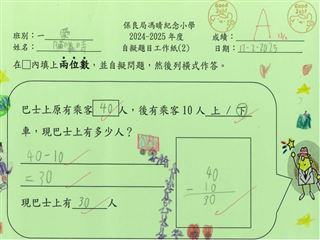 保良局馮晴紀念小學
班別：一 愛
2024-2025 年度
成績： A
姓名：
自擬題目工作紙(2)
日期：11-2-2025
Good Job!
Good Job!
在□內填上兩位數，並自擬問題，然後列橫式作答。
巴士上原有乘客 40 人，後有乘客 10 人 上 / 下
車，現巴士上有多少人？
40-10
=30
現巴士上有 30 人
40
- 10
30